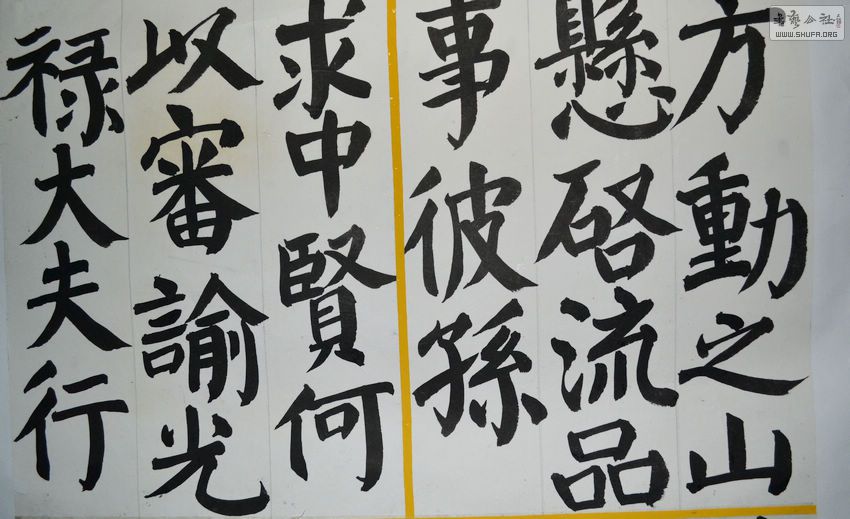 方動之山
懸啓流品
事彼孫
求中賢何
以審諭光
禄大夫行
書藝公社
WWW.SHUFA.ORG